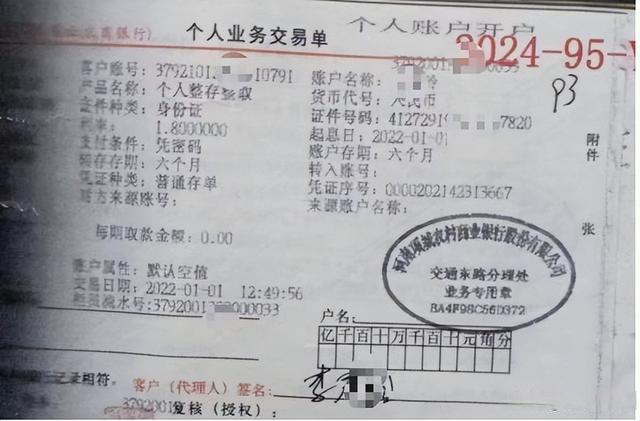 个人账户开户
商银行) 个人业务交易单
2024-95-
P3
客户账号: 3792101 10791 账户名称:
产品名称: 个人整存整取 货币代号: 人民币
证件种类: 身份证 证件号码: 41272919 7820
利率: 1.8000000 起息日: 2022-01-01
支付条件: 凭密码 账户存期: 六个月
转存存期: 六个月 转入账号:
凭证种类: 普通存单 凭证序号: 0000202142313667
对方来源账号: 来源账户名称:
每期取款金额: 0.00
附件
张
账户属性: 默认空值
交易日期: 2022-01-01 12:49:56
柜员流水号: 3792001 0000033
河南项城农村商业银行股份有限公司
交通东路分理处
业务专用章
BA4F98C56D372
户名:
亿千百十万千百十元角分
记录相符。 客户(代理人)签名: 李
3792001 复核(授权):